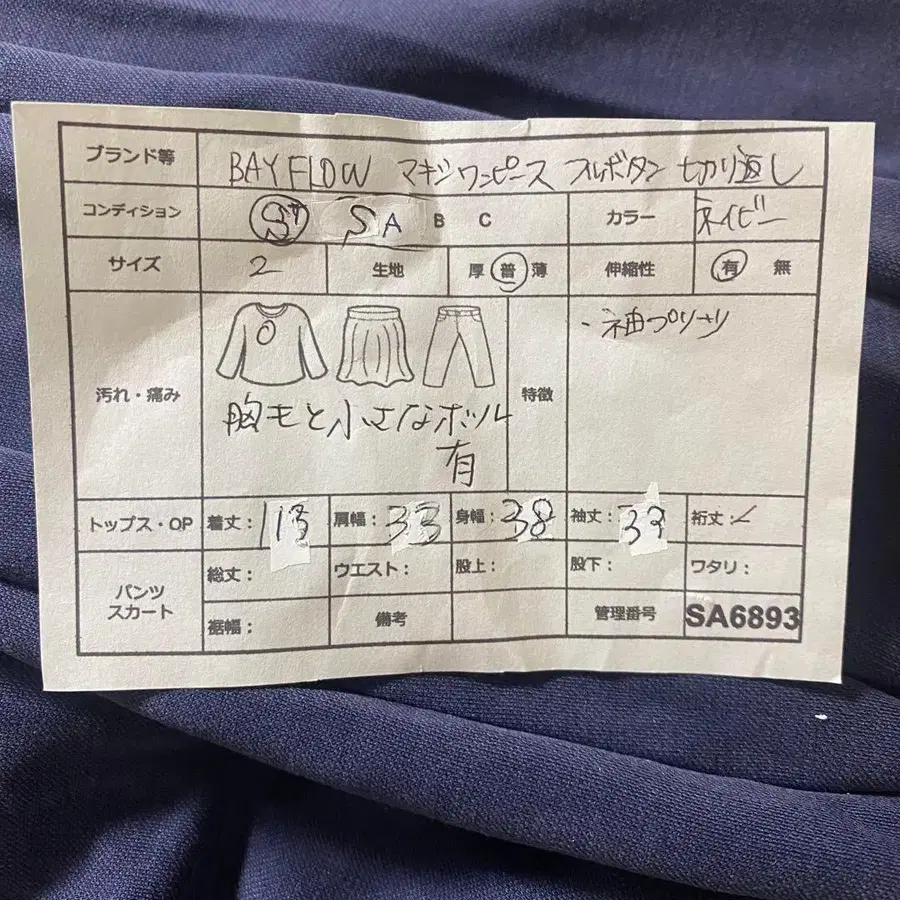 ブランド等 BAYFLOW マキシワンピース フルボタン 切り返し
コンディション S A B C カラー ネイビー
サイズ 2 生地 厚 普 薄 伸縮性 有 無
汚れ・痛み 胸もと小さなボツル 特徴 ・袖プリーツ
有
トップス・OP 着丈：113 肩幅：33 身幅：38 袖丈：33 裄丈：
パンツ 総丈： ウエスト： 股上： 股下： ワタリ：
スカート 裾幅： 備考 管理番号 SA6893